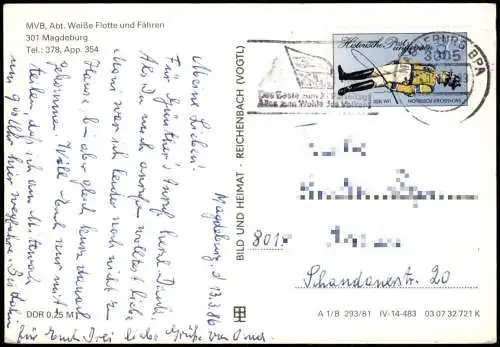 MVB, Abt. Weiße Flotte und Fähren
301 Magdeburg
Tel.: 378, App. 354
Magdeburg, d. 13.3.86
Meine Lieben!
Für Günther's Anruf herzl. Dank.
Als Du noch anrufen wolltest liebe
war ich leider noch nicht zu
Hause, bin aber gleich kurz danach
gekommen. Will Euch nur mit-
teilen daß ich am
um 9 Uhr hier wegfahre. Bis dahin
für Euch Drei liebe Grüße von Omi.
DDR 0,25 M
BILD UND HEIMAT · REICHENBACH (VOGTL)
Historische Postuniformen
DDR
MAGDEBURG BPA
Das Beste zum
Alles zum Wohle des Volkes
801
Schandauerstr. 20
A 1/B 293/81 IV-14-483 03 07 32 721 K